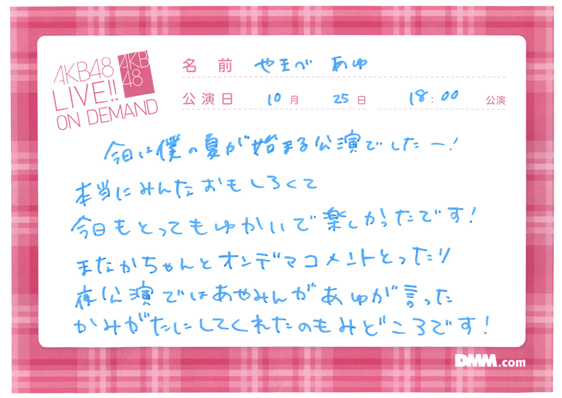 AKB48
LIVE!!
ON DEMAND
AKB
48
名前 やまべ あゆ
公演日 10月 25日 18:00 公演
今日は僕の夏が始まる公演でしたー!
本当にみんなおもしろくて
今日もとってもゆかいで楽しかったです!
まなかちゃんとオンデマコメントとったり
夜公演ではあやみんがあゆが言った
かみがたにしてくれたのもみどころです!
DMM.com